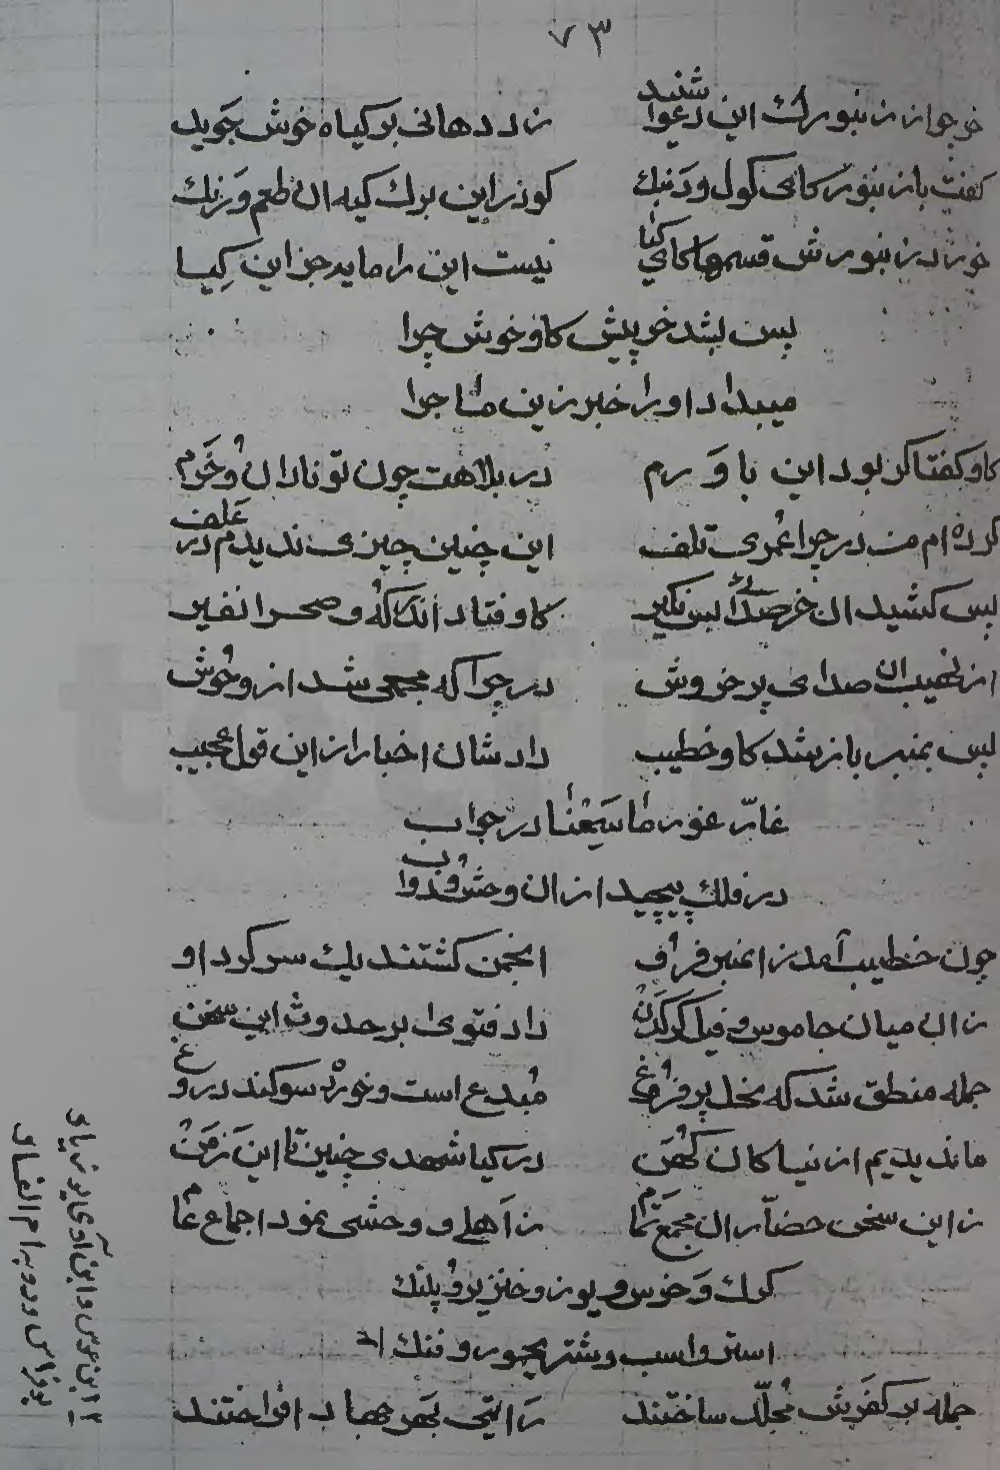 ۷۳
خر چو از زنبورک این دعوا شنید زد دهانی بر کیاه خوش جوید
کفت با زنبور کای کول و دنک کو در این برک کیه ان طعم و رنک
خورد زنبورش قسمها کای کیا نیست این را ماید جز این کیا
پس بشد خر پیش کاو خوش چرا
میبداد او را خبر زین ماجرا
کاو کفتا کر بود این باورم در بلاهت چون تو نادان و خرم
کرده ام من در چرا عمری تلف این چنین چیزی ندیدم در علف
پس کشید ان خر صدائی بس نکیر کاو فتاد اندر که و صحرا نفیر
از نهیب ان صدای پر خروش در چرا که مجمعی شد از وحوش
پس بمنبر باز شد کاو خطیب دادشان اخبار از این قول عجیب
عار عور ما سمعنا در جواب
در فلک پیچید از ان وحش و دواب
چون خطیب آمد ز منبر فرو انجمن کشتند یک سر کرد او
زان میان جاموس و فیل و کرکدن داد فتوی بر حدوث این سخن
جمله منطق شد که نحل پر فروغ مبدع است و خورد سوکند دروغ
ما ندیدیم از نیاکان کهن در کیا شهدی چنین تا این زمن
زاین سخن حضار ان مجمع تمام ز اهلی و وحشی نمود اجماع عام
کرک و خرس و یوز و خنزیر و پلنک
استر و اسب و شتر
جمله بر کفرش مجلد ساختند رایتی بهر جهاد افراختند